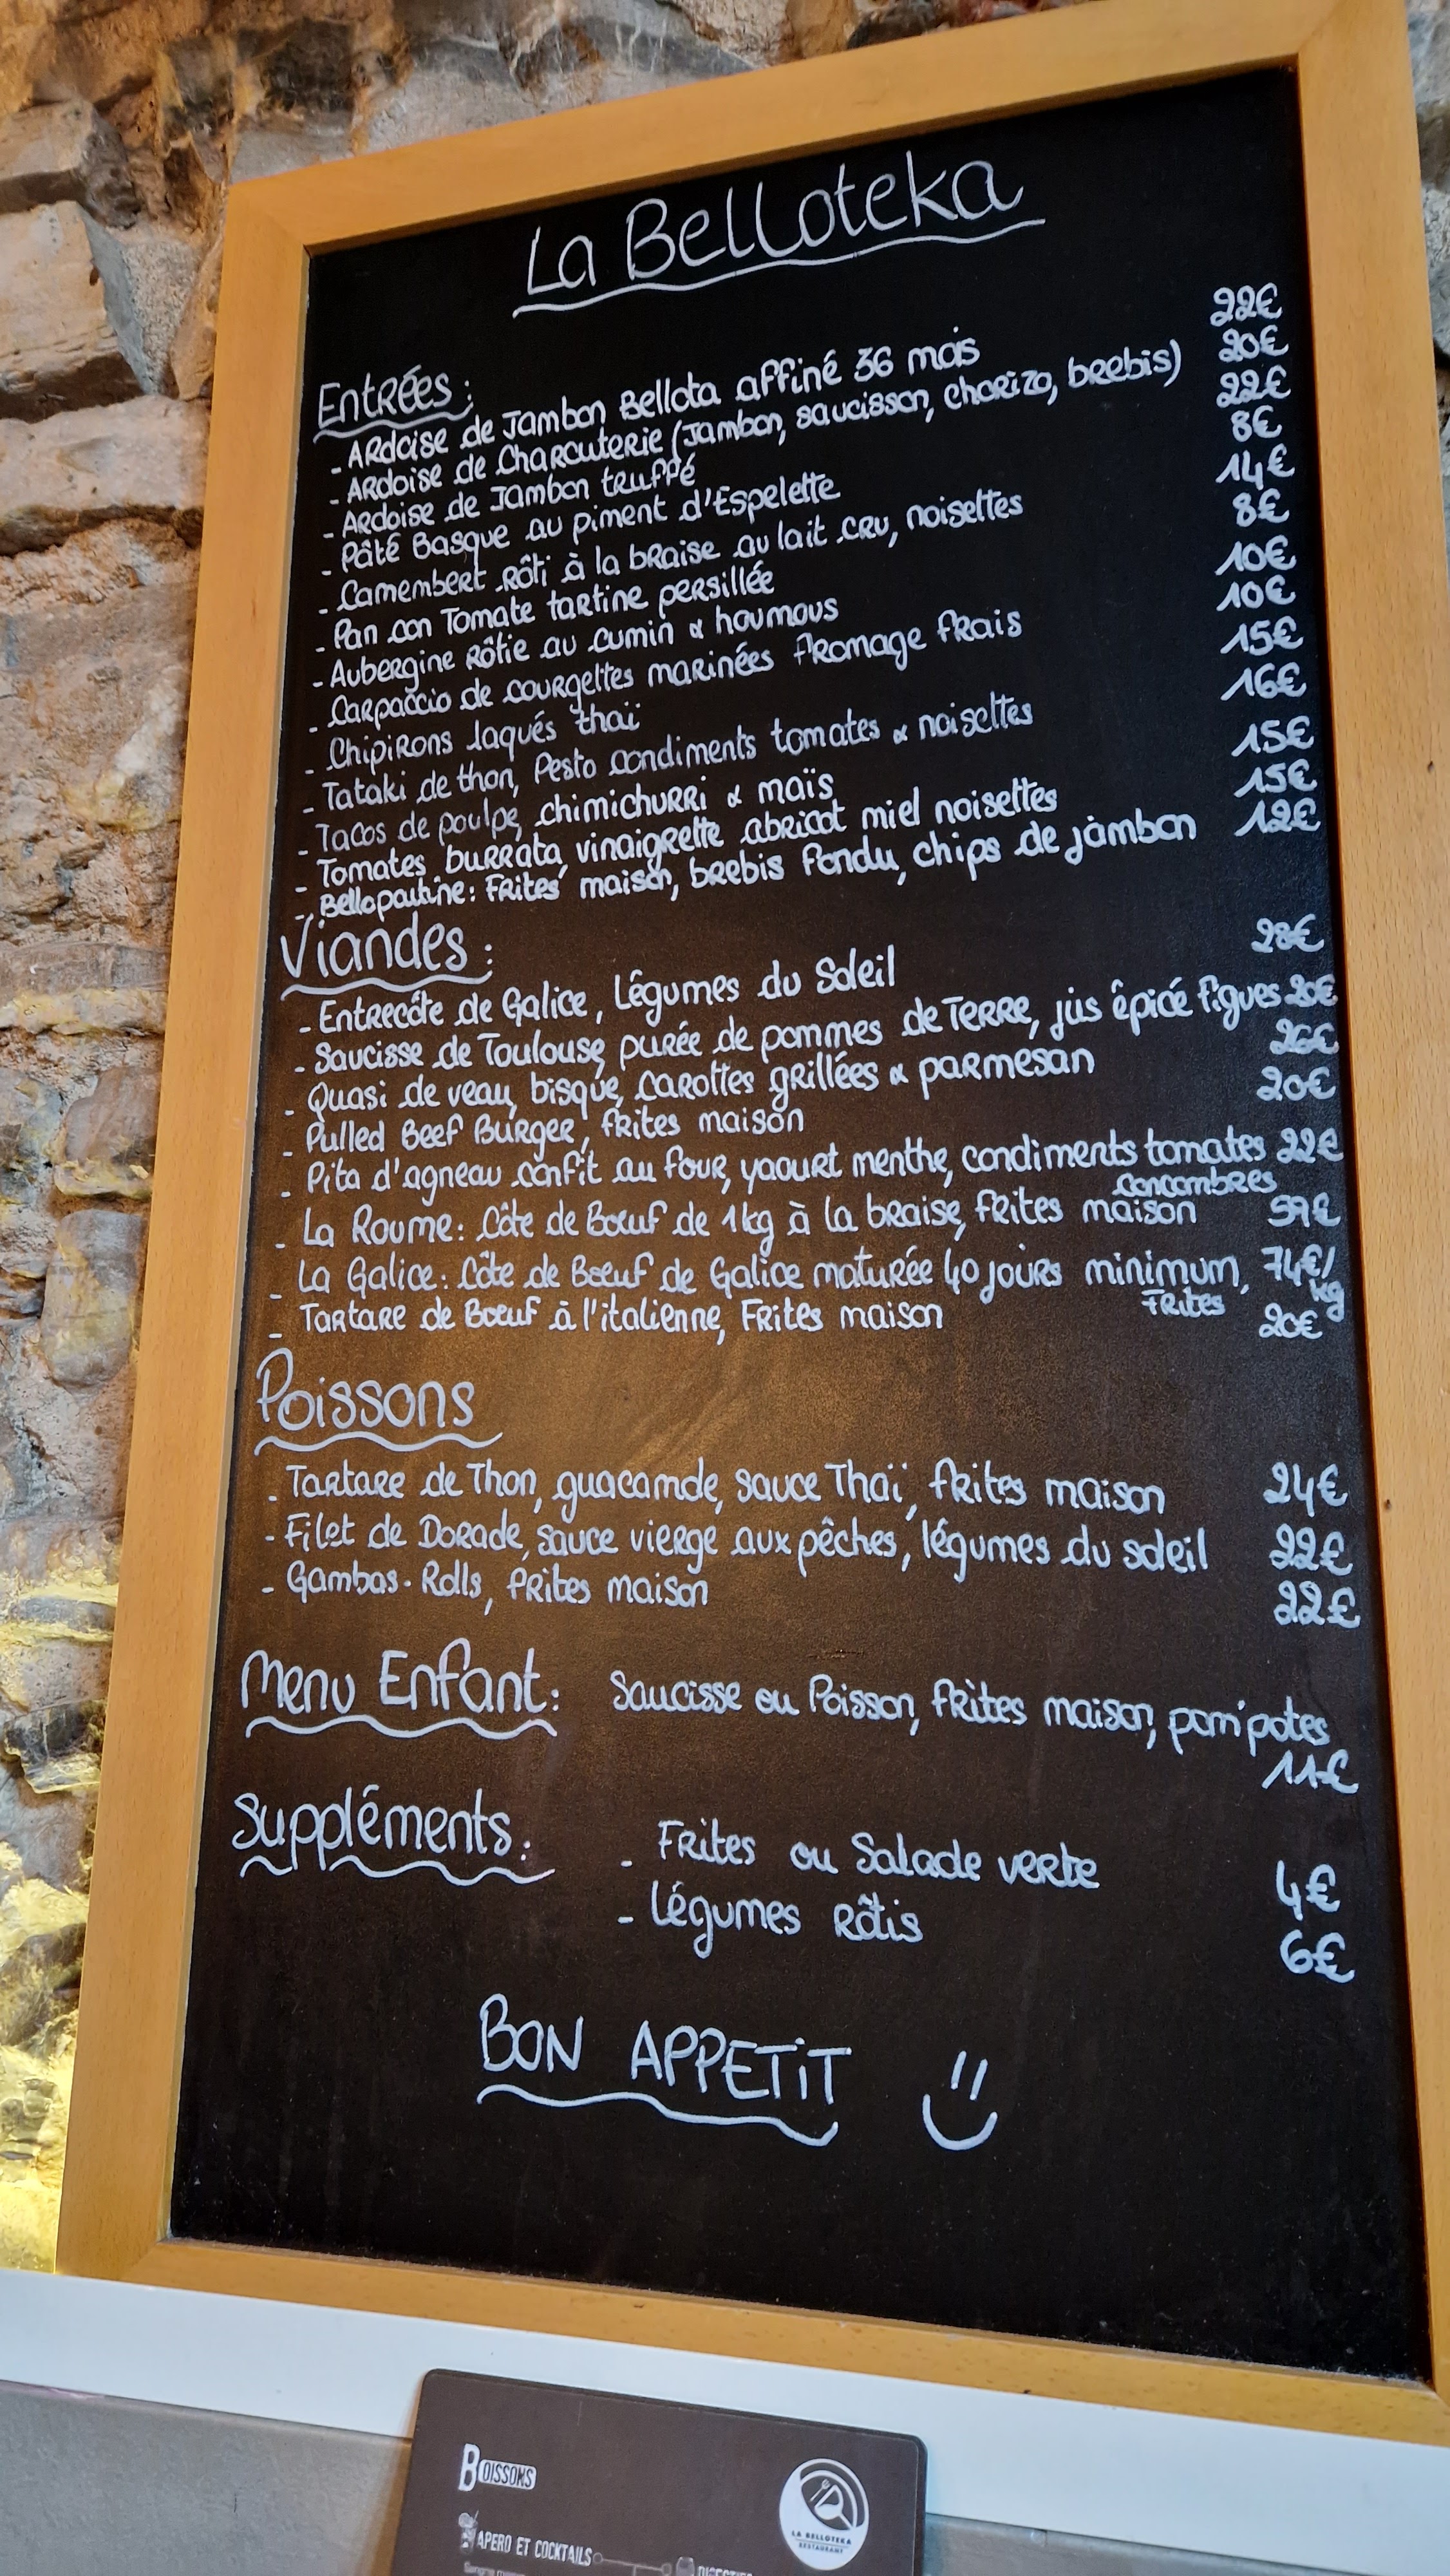 La Belloteka
Entrées :
- Ardoise de Jambon Bellota affiné 36 mois 22€
- Ardoise de Charcuterie (Jambon, saucisson, chorizo, brebis) 20€
- Ardoise de Jambon truffé 22€
- Pâté Basque au piment d'Espelette 8€
- Camembert rôti à la braise au lait cru, noisettes 14€
- Pan con Tomate tartine persillée 8€
- Aubergine rôtie au cumin & houmous 10€
- Carpaccio de courgettes marinées fromage frais 10€
- Chipirons laqués thaï 15€
- Tataki de thon, Pesto condiments tomates & noisettes 16€
- Tacos de poulpe, chimichurri & maïs 15€
- Tomates, burrata, vinaigrette abricot miel noisettes 15€
- Belloparline: Frites maison, brebis fondu, chips de jambon 12€
Viandes :
- Entrecôte de Galice, Légumes du Soleil 28€
- Saucisse de Toulouse, purée de pommes de Terre, jus épicé figues 20€
- Quasi de veau, bisque, carottes grillées & parmesan 26€
- Pulled Beef Burger, frites maison 20€
- Pita d'agneau confit au four, yaourt menthe, condiments tomates 22€
concombres
- La Roume: Côte de Bœuf de 1kg à la braise, frites maison 59€
- La Galice: Côte de Bœuf de Galice maturée 40 jours minimum, 74€/
Frites kg
- Tartare de Bœuf à l'italienne, Frites maison 20€
Poissons
- Tartare de Thon, guacamole, sauce Thaï, frites maison 24€
- Filet de Dorade, sauce vierge aux pêches, légumes du soleil 22€
- Gambas-Rolls, frites maison 22€
Menu Enfant: Saucisse ou Poisson, frites maison, pom'potes
11€
Suppléments: - Frites ou Salade verte 4€
- Légumes Rôtis 6€
BON APPETIT
BOISSONS
APERO ET COCKTAILS
LA BELLOTEKA
RESTAURANT